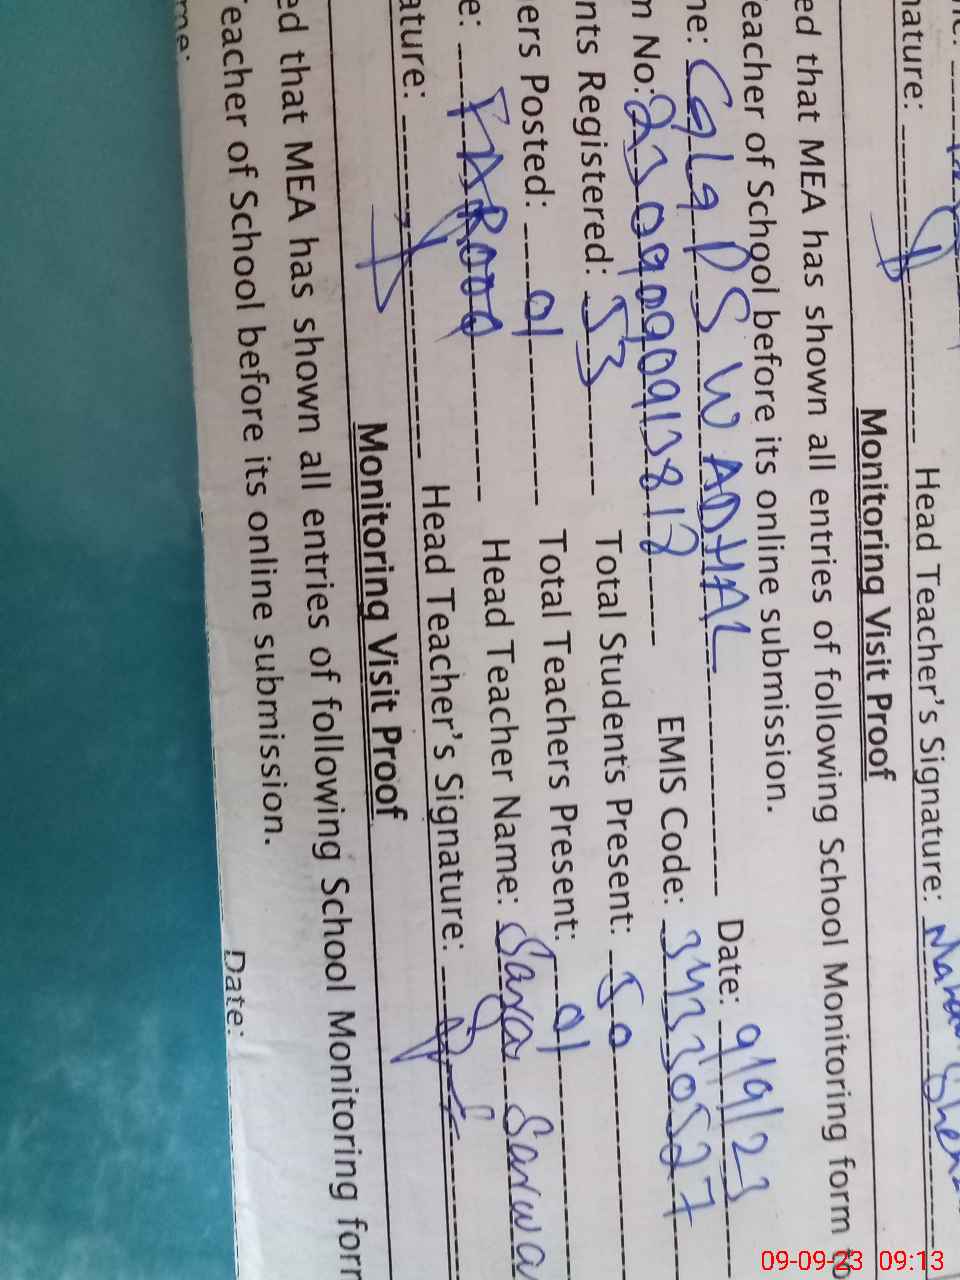 nature: Head Teacher's Signature:
Monitoring Visit Proof
ed that MEA has shown all entries of following School Monitoring form to
Teacher of School before its online submission.
me: GLG PS WADHAL Date: 9/9/23
m No: EMIS Code: 34330527
nts Registered: 53 Total Students Present: 50
ers Posted: 01 Total Teachers Present: 01
e: FAROOQ Head Teacher Name: Sarwa
ature: Head Teacher's Signature:
Monitoring Visit Proof
ed that MEA has shown all entries of following School Monitoring form
Teacher of School before its online submission.
me: Date:
09-09-23 09:13